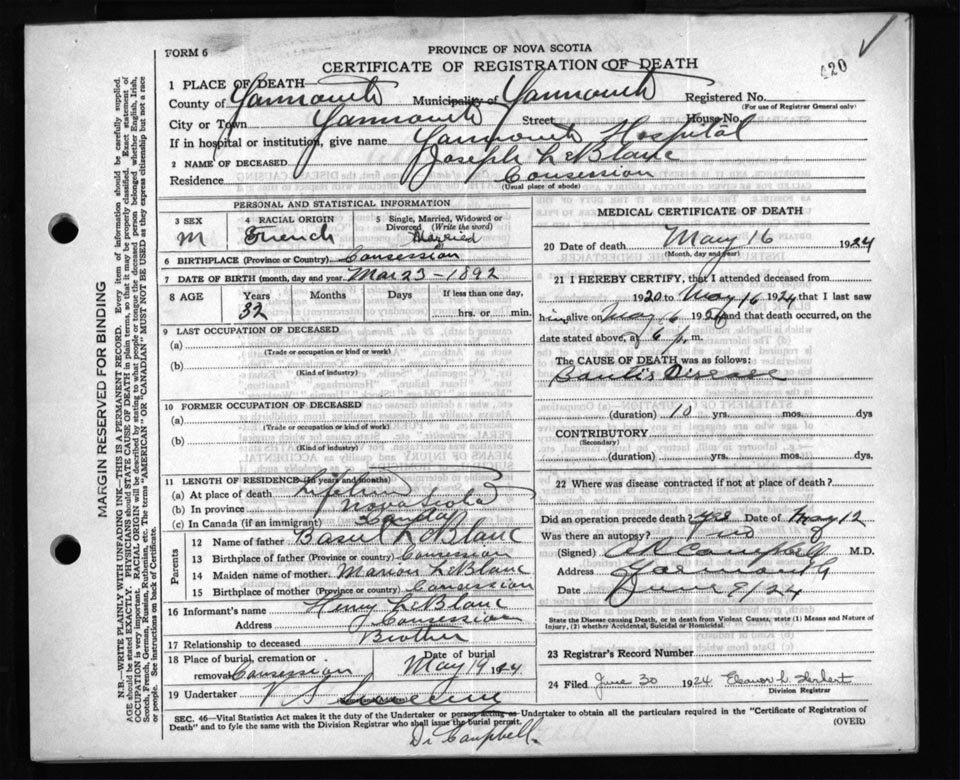 FORM 6
PROVINCE OF NOVA SCOTIA
CERTIFICATE OF REGISTRATION OF DEATH
420
1 PLACE OF DEATH
County of Yarmouth Municipality of Yarmouth Registered No.
(For use of Registrar General only)
City or Town Yarmouth Street House No.
If in hospital or institution, give name Yarmouth Hospital
2 NAME OF DECEASED Joseph LeBlanc
Residence Consession
(Usual place of abode)
PERSONAL AND STATISTICAL INFORMATION
3 SEX M
4 RACIAL ORIGIN French
5 Single, Married, Widowed or Divorced (Write the word) Married
6 BIRTHPLACE (Province or Country) Consession
7 DATE OF BIRTH (month, day and year) Mar 23-1892
8 AGE Years Months Days If less than one day,
32 hrs. or min.
9 LAST OCCUPATION OF DECEASED
(a)
(Trade or occupation or kind or work)
(b)
(Kind of industry)
10 FORMER OCCUPATION OF DECEASED
(a)
(Trade or occupation or kind of work)
(b)
(Kind of industry)
11 LENGTH OF RESIDENCE (In years and months)
(a) At place of death Lifetime
(b) In province Nova Scotia
(c) In Canada (if an immigrant) Canada
Parents
12 Name of father LeBlanc
13 Birthplace of father (Province or country) Consession
14 Maiden name of mother Marion LeBlanc
15 Birthplace of mother (Province or country) Consession
16 Informant's name Henry LeBlanc
Address Consession
17 Relationship to deceased Brother
18 Place of burial, cremation or removal Consession
Date of burial May 19 1924
19 Undertaker V S Sweeny
MEDICAL CERTIFICATE OF DEATH
20 Date of death May 16 1924
(Month, day and year)
21 I HEREBY CERTIFY, that I attended deceased from
1920 to May 16 1924 that I last saw
him alive on May 16 1924 and that death occurred, on
date stated above, at 6 p. m.
The CAUSE OF DEATH was as follows:
Banti's Disease
(duration) 10 yrs. mos. dys
CONTRIBUTORY
(Secondary)
(duration) yrs. mos. dys.
22 Where was disease contracted if not at place of death?
Did an operation precede death? Yes Date of May 12
Was there an autopsy? no
(Signed) Campbell M.D.
Address Yarmouth
Date June 9/24
State the Disease causing Death, or in death from Violent Causes, state (1) Means and Nature of
Injury, (2) whether Accidental, Suicidal or Homicidal.
23 Registrar's Record Number
24 Filed June 30 1924 Eleanor L. Herbert
Division Registrar
SEC. 46—Vital Statistics Act makes it the duty of the Undertaker or person acting as Undertaker to obtain all the particulars required in the "Certificate of Registration of
Death" and to fyle the same with the Division Registrar who shall issue the burial permit.
(OVER)
Dr Campbell.
MARGIN RESERVED FOR BINDING
N.B.—WRITE PLAINLY WITH UNFADING INK—THIS IS A PERMANENT RECORD. Every item of information should be carefully supplied.
AGE should be stated EXACTLY. PHYSICIANS should STATE CAUSE OF DEATH in plain terms, so that it may be properly classified. Exact statement of
OCCUPATION is very important. RACIAL ORIGIN will be described by stating to what people or tongue the deceased person belonged whether English, Irish,
Scotch, French, German, Russian, Ruthenian, etc. The terms "AMERICAN" OR "CANADIAN" MUST NOT BE USED as they express citizenship but not a race
or people. See instructions on back of Certificate.